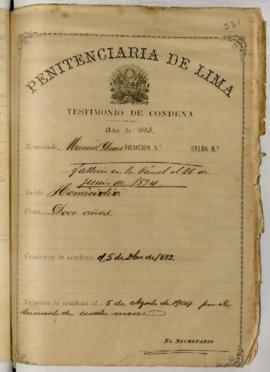 331
PENITENCIARIA DE LIMA
TESTIMONIO DE CONDENA
Año de 1893
Rematado Manuel FILIACION N.º CELDA N.º
Falleció en la Cárcel el 26 de
Junio de 1894
Delito Homicidio
Pena Doce años
Comienza la condena el 5 de Dbre de 1892
Termina la condena el 5 de Agosto de 1904 por el
descuento de cuatro meses
EL SECRETARIO